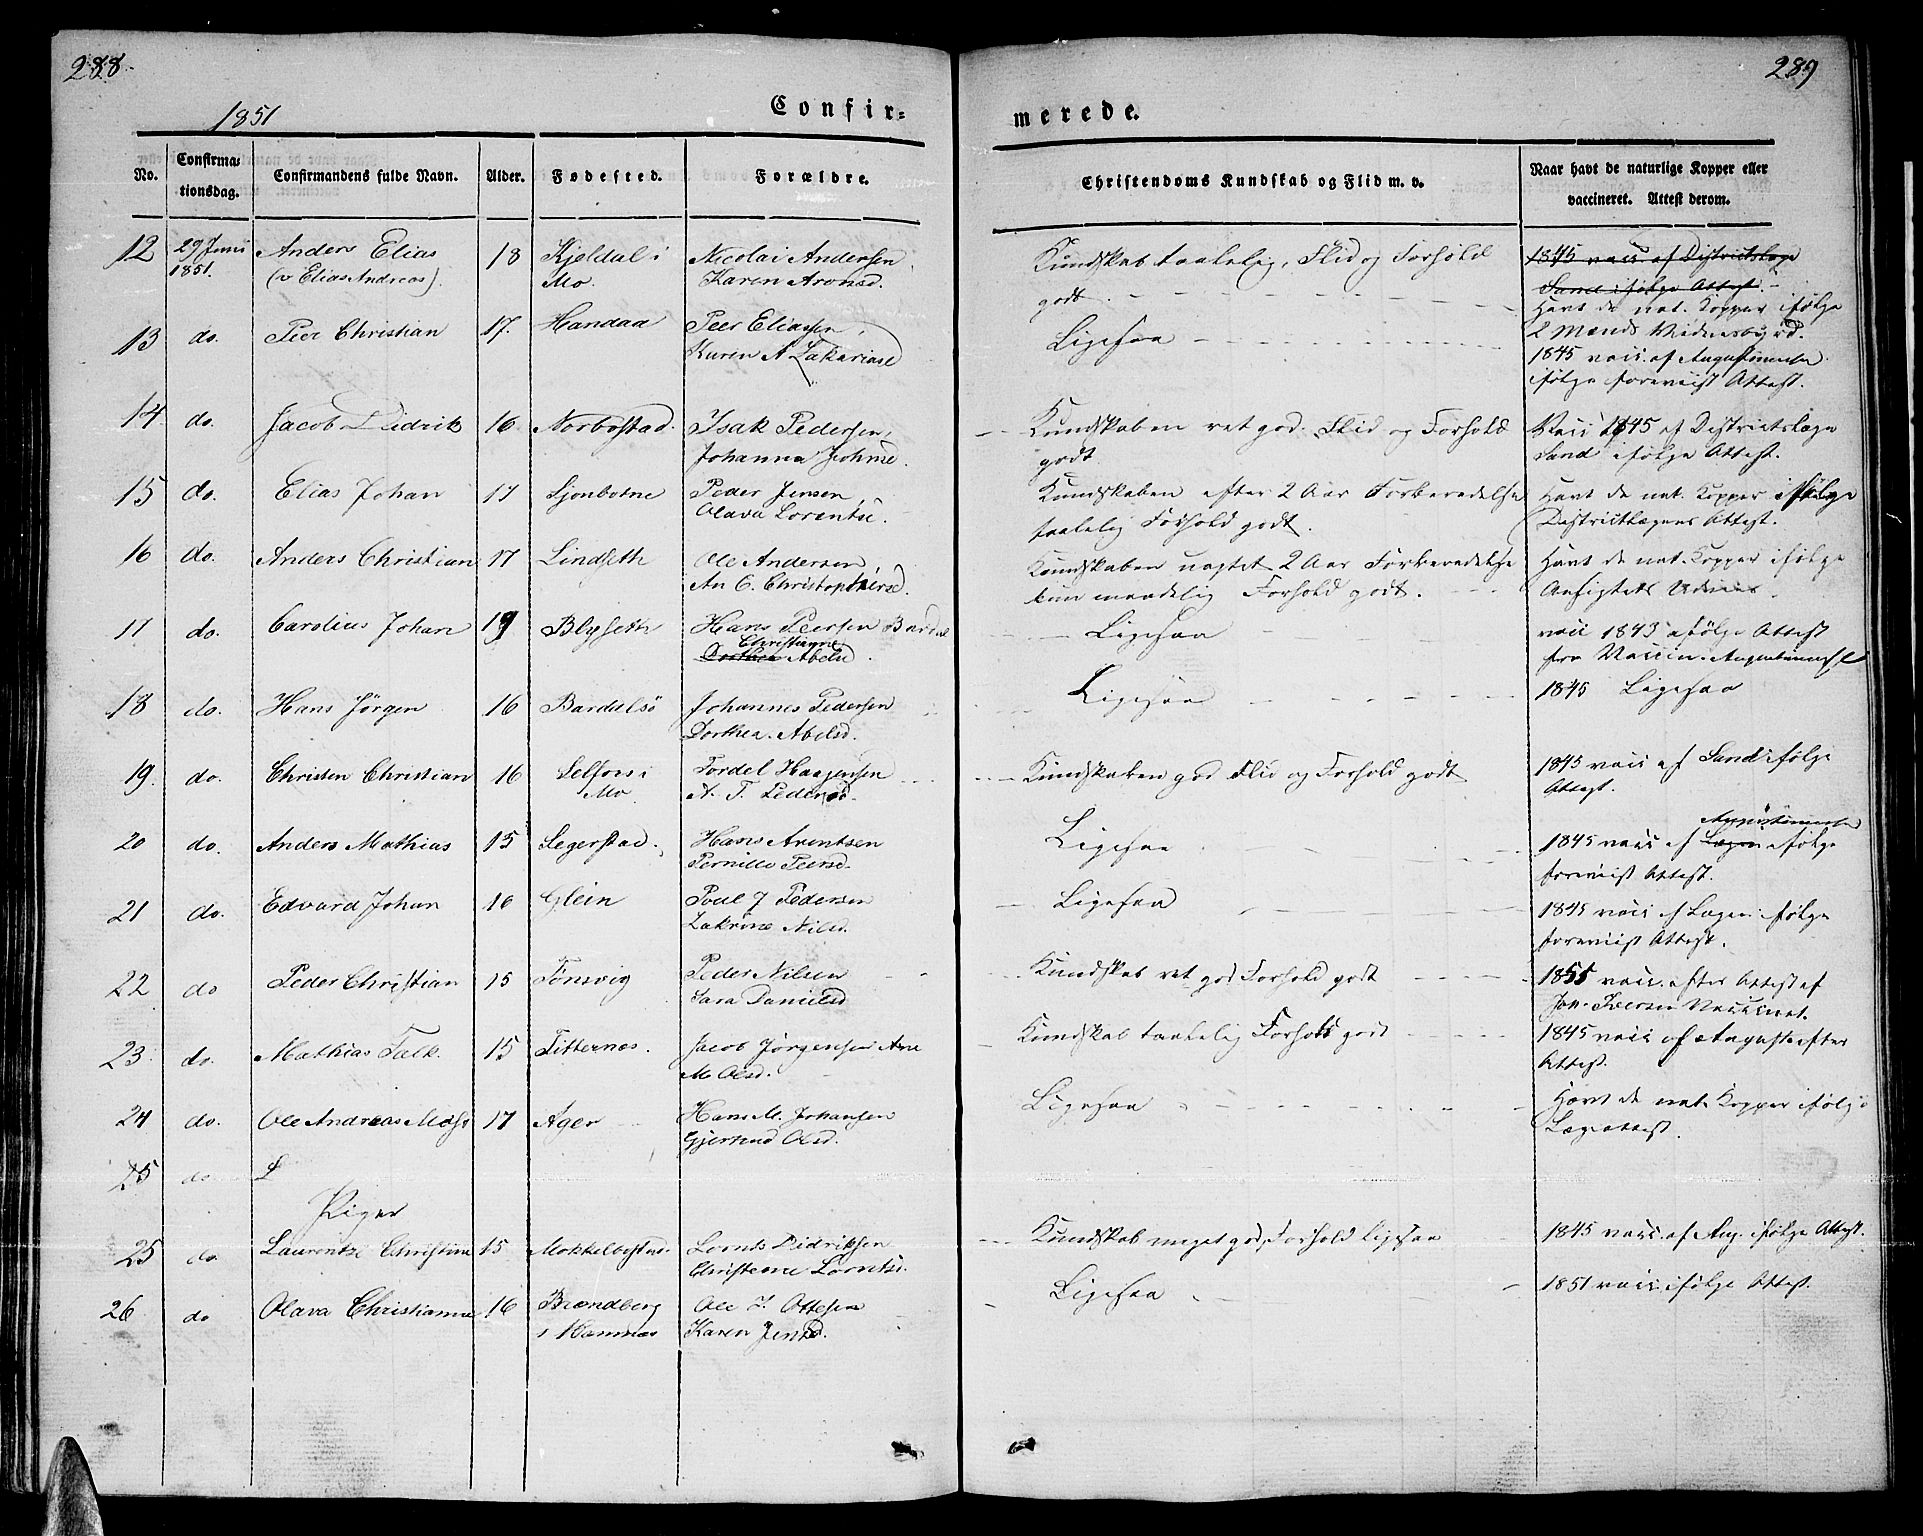 288
289
1851
Confir=
merede.
No.
Confirma=
tionsdag.
Confirmandens fulde Navn.
Alder.
Fødested.
Forældre.
Christendoms Kundskab og Flid m. v.
Naar havt de naturlige Kopper eller
vaccineret. Attest derom.
12 29 Juni Anders Elias 18 Kjeldal i Nicolai Andersen, Kundskab taalelig, Flid og Forhold 1845 vacc af Districtslæge
1851. (v Elias Andreas). Mo. Karen Aronsd. godt. Sand ifølge Attest.
Havt de nat. Kopper ifølge
2 Mænds Vidnesbyrd.
13 do. Peer Christian 17. Handaa Peer Eliassen, Ligesaa 1845 vacc. af
Karen A Zakariasd ifølge foreviist Attest.
14 do. Jacob Didrik 16 Norbostad. Isak Pedersen, Kundskaben ret god. Flid og Forhold Vacc 1845 af Districtslæge
Johanna Johnsd. godt. Sand ifølge Attest.
15 do. Elias Johan 17 Sjonbotne Peder Jensen, Kundskaben efter 2 Aar Forberedelse Havt de nat. Kopper ifølge
Olava Lorentsd. taalelig Forhold godt. Districtlægens Attest.
16 do. Anders Christian 17 Lindseth Ole Andersen, Kundskaben uagtet 2 Aar Forberedelse Havt de nat. Kopper ifølge
An C. Christophersd. kun maadelig Forhold godt. Ansigtets Udviis.
17 do. Carolius Johan 19 Blyseth Hans Peersen Bardal Ligesaa vacc 1843 ifølge Attest
Christianne
Dorthea Abelsd. fra Vaccin.
18 do. Hans Jørgen 16 Bardalsö Johannes Pedersen Ligesaa 1845 Ligesaa
Dorthea Abelsd.
19. do. Christen Christian 16 Selfors i Tordel Haagensen Kundskaben god Flid og Forhold godt 1845 vacc af Sand ifølge
Mo A. T. Pedersd. Attest.
20 do. Anders Mathias 15 Segerstad. Hans Arentsen Ligesaa 1845 vacc af Lægen ifølge
Pernille Peersd. foreviist Attest.
21 do. Edvard Johan 16 Glein Poul J Pedersen Ligesaa 1845 vacc af Lægen ifølge
Zakrine Nilsd. foreviist Attest.
22 do Peder Christian 15 Tønsvig Peder Nilsen Kundskab ret god Forhold godt 1855 vacc. efter Attest af
Sara Danielsd Vaccinat.
23. do. Mathias Falk. 15 Titternes. Jacob Jørgensen Ane Kundskab taalelig Forhold godt 1845 vacc af August efter
M Olsd. Attest.
24 do. Ole Andreas Moss 17 Ager Hans M. Johansen Ligesaa Havt de nat. Kopper ifølge
Gjertrud Olsd. Lægeattest.
25 do L
Piger
25 do. Laurentze Christine 15 Mokkelbostad. Lornts Didriksen Kundskab meget god, Forhold Ligesaa 1845 vacc. af Aug. ifølge Attest.
Christenne Lorntsd.
26 do Olava Christianne 16 Brændberg Ole J. Ottesen Ligesaa 1851 vacc. ifølge Attest.
i Hamnæs Karen Jensd.